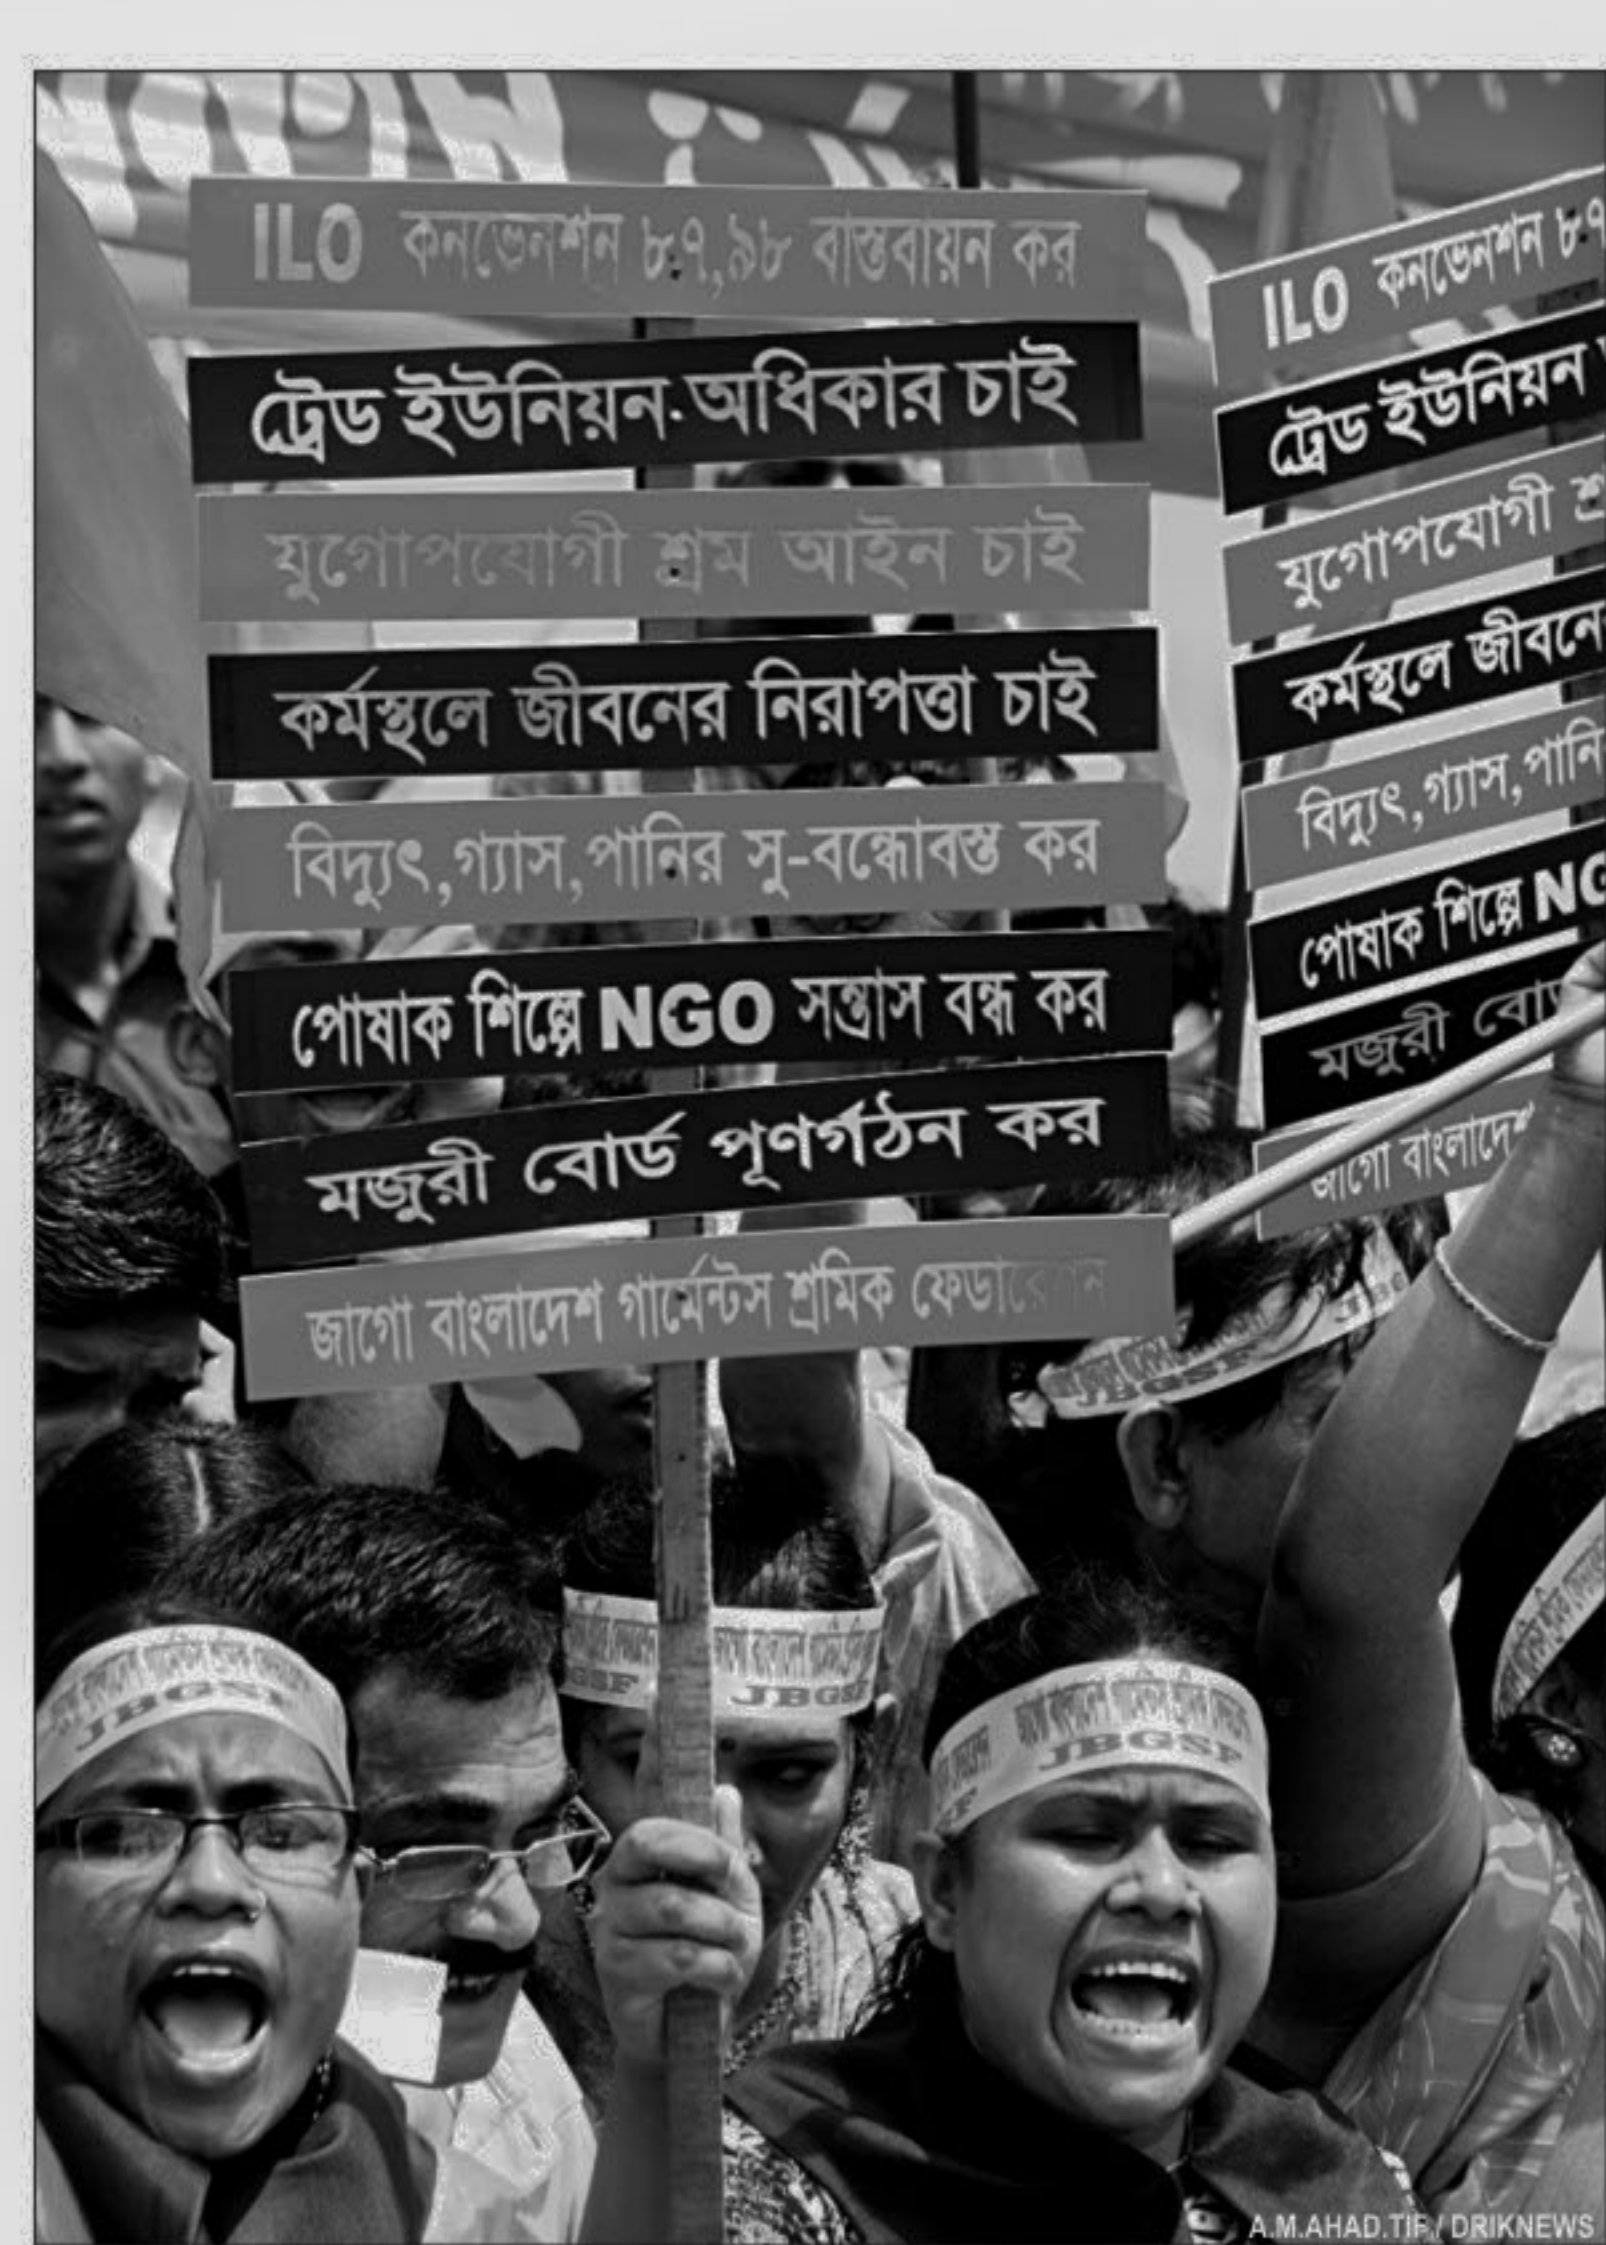 ILO কনভেনশন ৮৭,৯৮ বাস্তবায়ন কর
ট্রেড ইউনিয়ন অধিকার চাই
যুগোপযোগী শ্রম আইন চাই
কর্মস্থলে জীবনের নিরাপত্তা চাই
বিদ্যুৎ,গ্যাস,পানির সু-বন্ধোবস্ত কর
পোষাক শিল্পে NGO সন্ত্রাস বন্ধ কর
মজুরী বোর্ড পূণর্গঠন কর
জাগো বাংলাদেশ গার্মেন্টস শ্রমিক ফেডারেশন
ILO কনভেনশন ৮৭
ট্রেড ইউনিয়ন
যুগোপযোগী
কর্মস্থলে
বিদ্যুৎ,গ্যাস,
পোষাক শিল্পে
মজুরী
জাগো বাংলাদেশ
JBGSF
JBGSF
JBGSF
JBGSF
A.M.AHAD.TIF/ DRIKNEWS